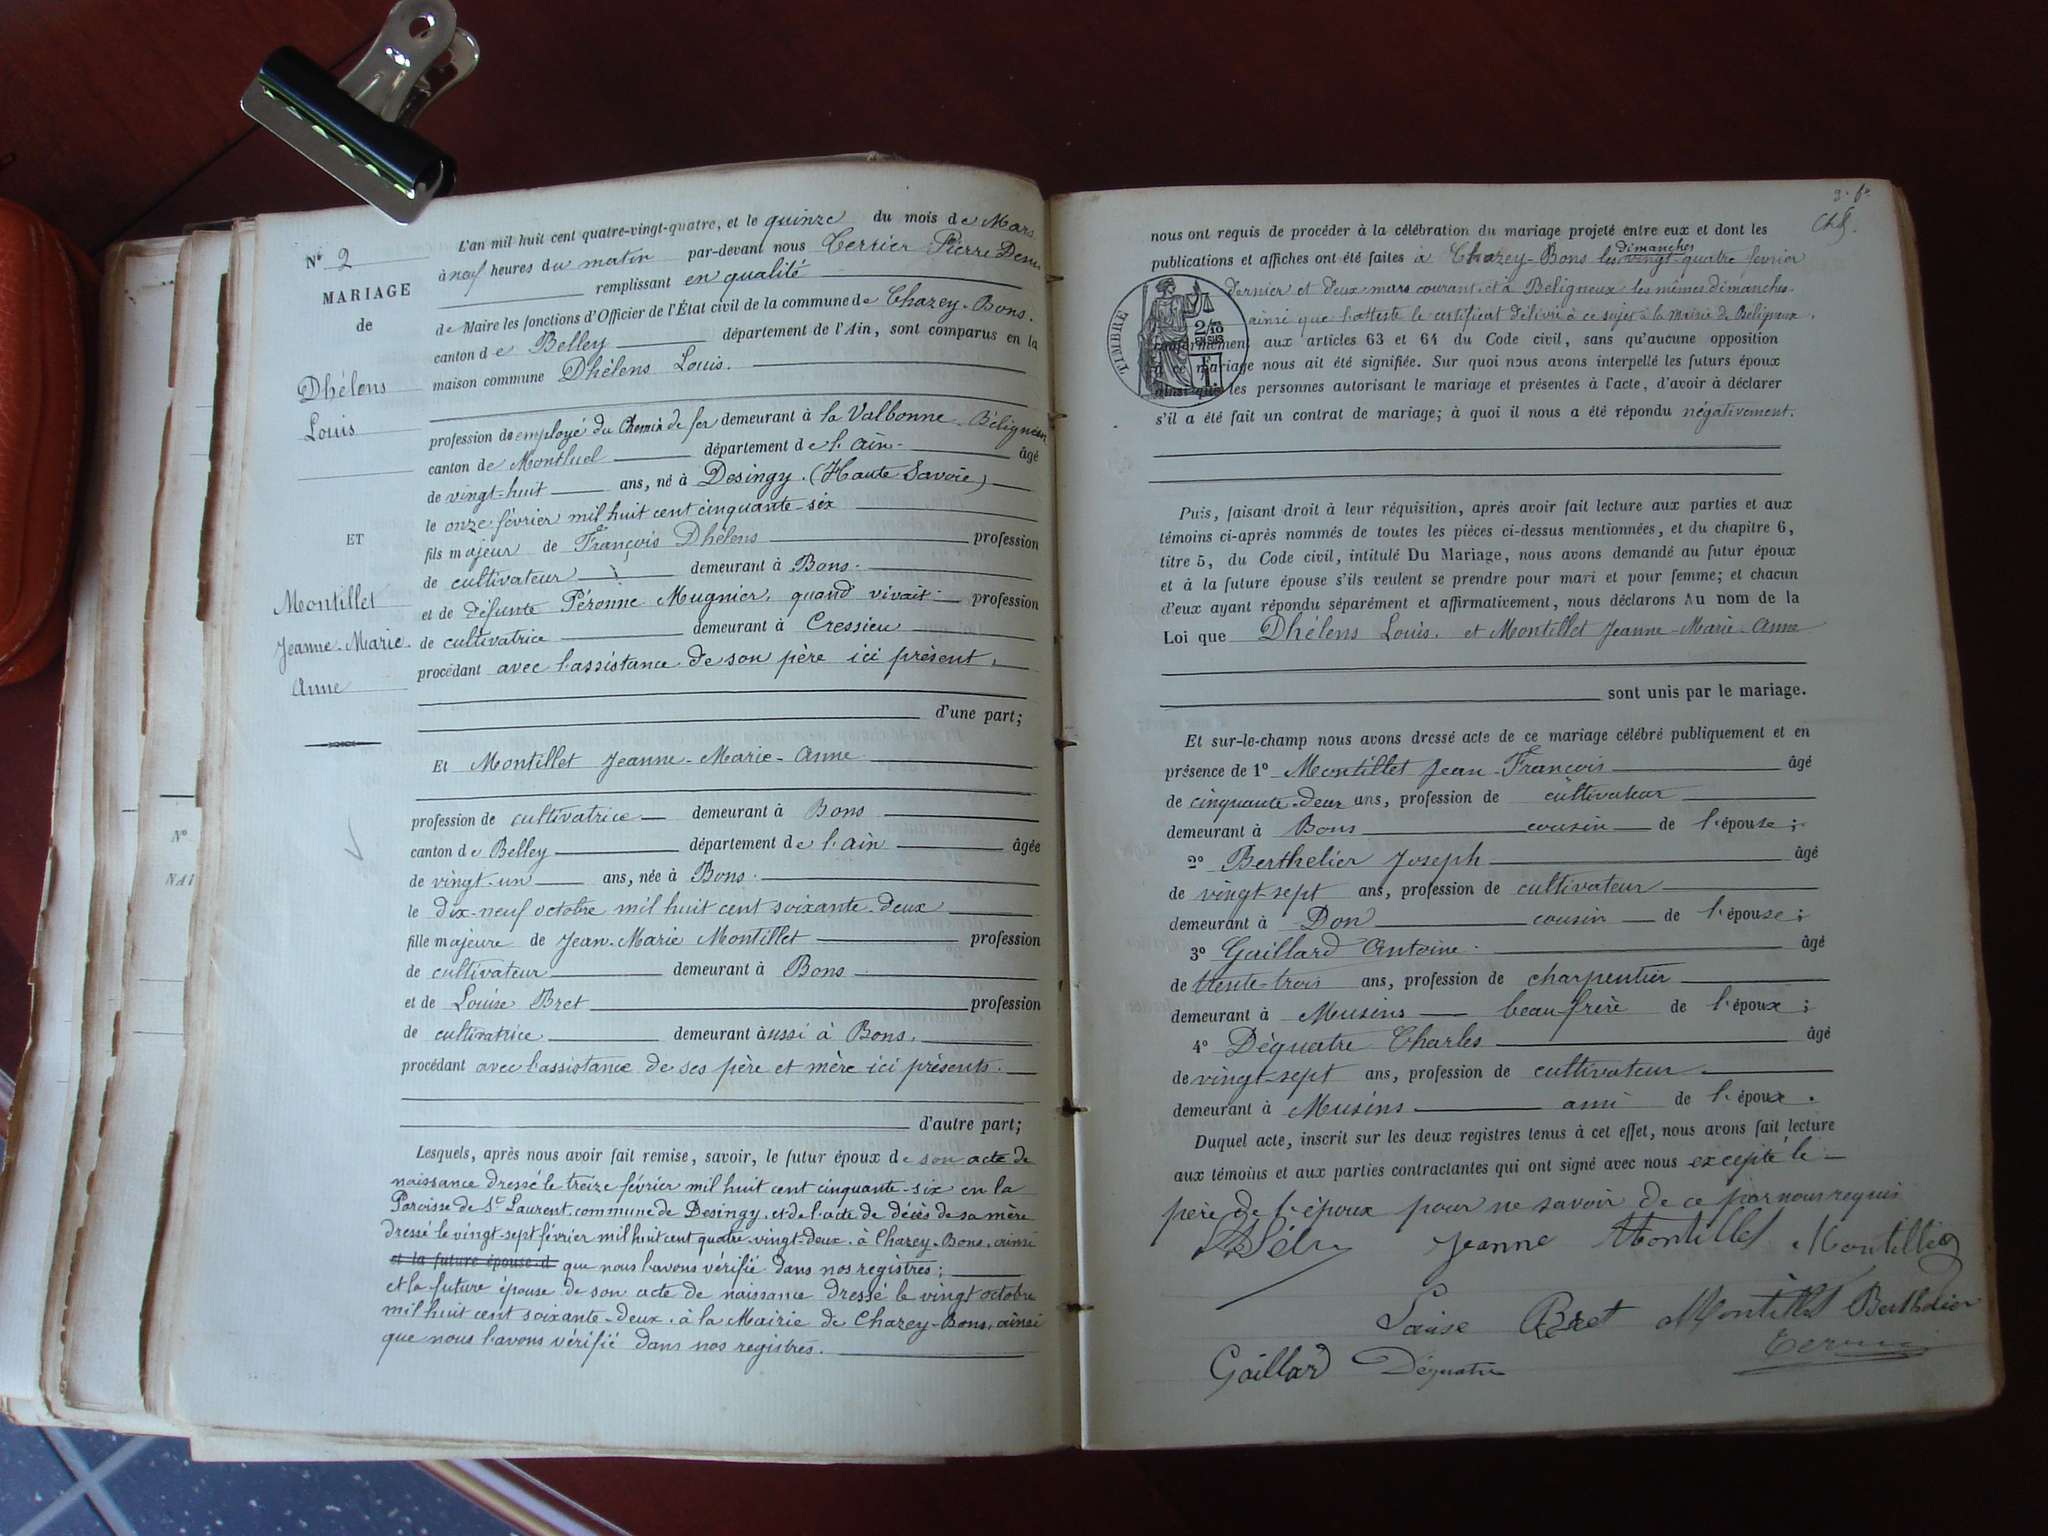 N° 2
MARIAGE
de
Dhélens
Louis
ET
Montillet
Jeanne-Marie
Anne
L'an mil huit cent quatre-vingt-quatre, et le quinze du mois de Mars
à neuf heures du matin par-devant nous Terrier Pierre
remplissant en qualité
de Maire les fonctions d'Officier de l'État civil de la commune de Chazey-Bons.
canton de Belley département de l'Ain, sont comparus en la
maison commune Dhélens Louis.
profession de employé du Chemin de fer demeurant à la Valbonne-
canton de Montluel département de l'Ain- âgé
de vingt-huit ans, né à Desingy. (Haute Savoie)
le onze février mil huit cent cinquante-six
fils majeur de François Dhélens profession
de cultivateur demeurant à Bons.
et de défunte Péronne Mugnier, quand vivait profession
de cultivatrice demeurant à Cressieu
procédant avec l'assistance de son père ici présent,
d'une part;
Et Montillet Jeanne-Marie-Anne
profession de cultivatrice demeurant à Bons
canton de Belley département de l'Ain âgée
de vingt-un ans, née à Bons.
le dix-neuf octobre mil huit cent soixante-deux
fille majeure de Jean-Marie Montillet profession
de cultivateur demeurant à Bons
et de Louise Bret profession
de cultivatrice demeurant aussi à Bons.
procédant avec l'assistance de ses père et mère ici présents.
d'autre part;
Lesquels, après nous avoir fait remise, savoir, le futur époux de son acte de
naissance dressé le treize février mil huit cent cinquante-six en la
Paroisse de St Laurent, commune de Desingy, et de l'acte de décès de sa mère
dressé le vingt-sept février mil huit cent quatre-vingt-deux à Chazey-Bons, ainsi
et la future épouse d que nous l'avons vérifié dans nos registres;
et la future épouse de son acte de naissance dressé le vingt octobre
mil huit cent soixante-deux à la Mairie de Chazey-Bons, ainsi
que nous l'avons vérifié dans nos registres.
N°
NAI
nous ont requis de procéder à la célébration du mariage projeté entre eux et dont les
dimanches
publications et affiches ont été faites à Chazey-Bons les vingt-quatre février
dernier et deux mars courant et à Béligneux les mêmes dimanches
ainsi que l'atteste le certificat délivré à ce sujet à la Mairie de Béligneux.
TIMBRE
2/10
EN SUS
conformément aux articles 63 et 64 du Code civil, sans qu'aucune opposition
à ce mariage nous ait été signifiée. Sur quoi nous avons interpellé les futurs époux
ainsi que les personnes autorisant le mariage et présentes à l'acte, d'avoir à déclarer
s'il a été fait un contrat de mariage; à quoi il nous a été répondu négativement.
Puis, faisant droit à leur réquisition, après avoir fait lecture aux parties et aux
témoins ci-après nommés de toutes les pièces ci-dessus mentionnées, et du chapitre 6,
titre 5, du Code civil, intitulé Du Mariage, nous avons demandé au futur époux
et à la future épouse s'ils veulent se prendre pour mari et pour femme; et chacun
d'eux ayant répondu séparément et affirmativement, nous déclarons Au nom de la
Loi que Dhélens Louis. et Montillet Jeanne-Marie-Anne
sont unis par le mariage.
Et sur-le-champ nous avons dressé acte de ce mariage célébré publiquement et en
présence de 1° Montillet Jean-François âgé
de cinquante-deux ans, profession de cultivateur
demeurant à Bons cousin de l'épouse;
2° Berthelier Joseph âgé
de vingt-sept ans, profession de cultivateur
demeurant à Don cousin de l'épouse;
3° Gaillard Antoine. âgé
de trente-trois ans, profession de charpentier
demeurant à Musins beau frère de l'époux;
4° Déquatre Charles âgé
de vingt-sept ans, profession de cultivateur
demeurant à Musins ami de l'époux.
Duquel acte, inscrit sur les deux registres tenus à cet effet, nous avons fait lecture
aux témoins et aux parties contractantes qui ont signé avec nous excepté le
père de l'époux pour ne savoir de ce par nous requis
Jeanne Montillet Montillet
Louise Bret Montillet Berthelier
Gaillard Déquatre